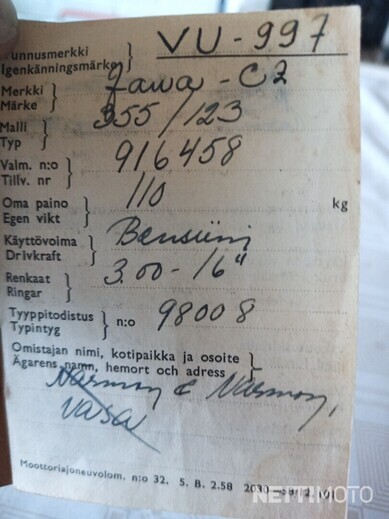 Tunnusmerkki
Igenkänningsmärke } VU-997
Merkki
Märke } Jawa-CZ
Malli
Typ } 355/123
Valm. n:o
Tillv. nr } 916458
Oma paino
Egen vikt } 110 kg
Käyttövoima
Drivkraft } Bensiini
Renkaat
Ringar } 3.00-16"
Tyyppitodistus
Typintyg } n:o 98008
Omistajan nimi, kotipaikka ja osoite
Ägarens namn, hemort och adress }
Vasa
Moottoriajoneuvolom. n:o 32. 5. B. 2.58
NETTIMOTO